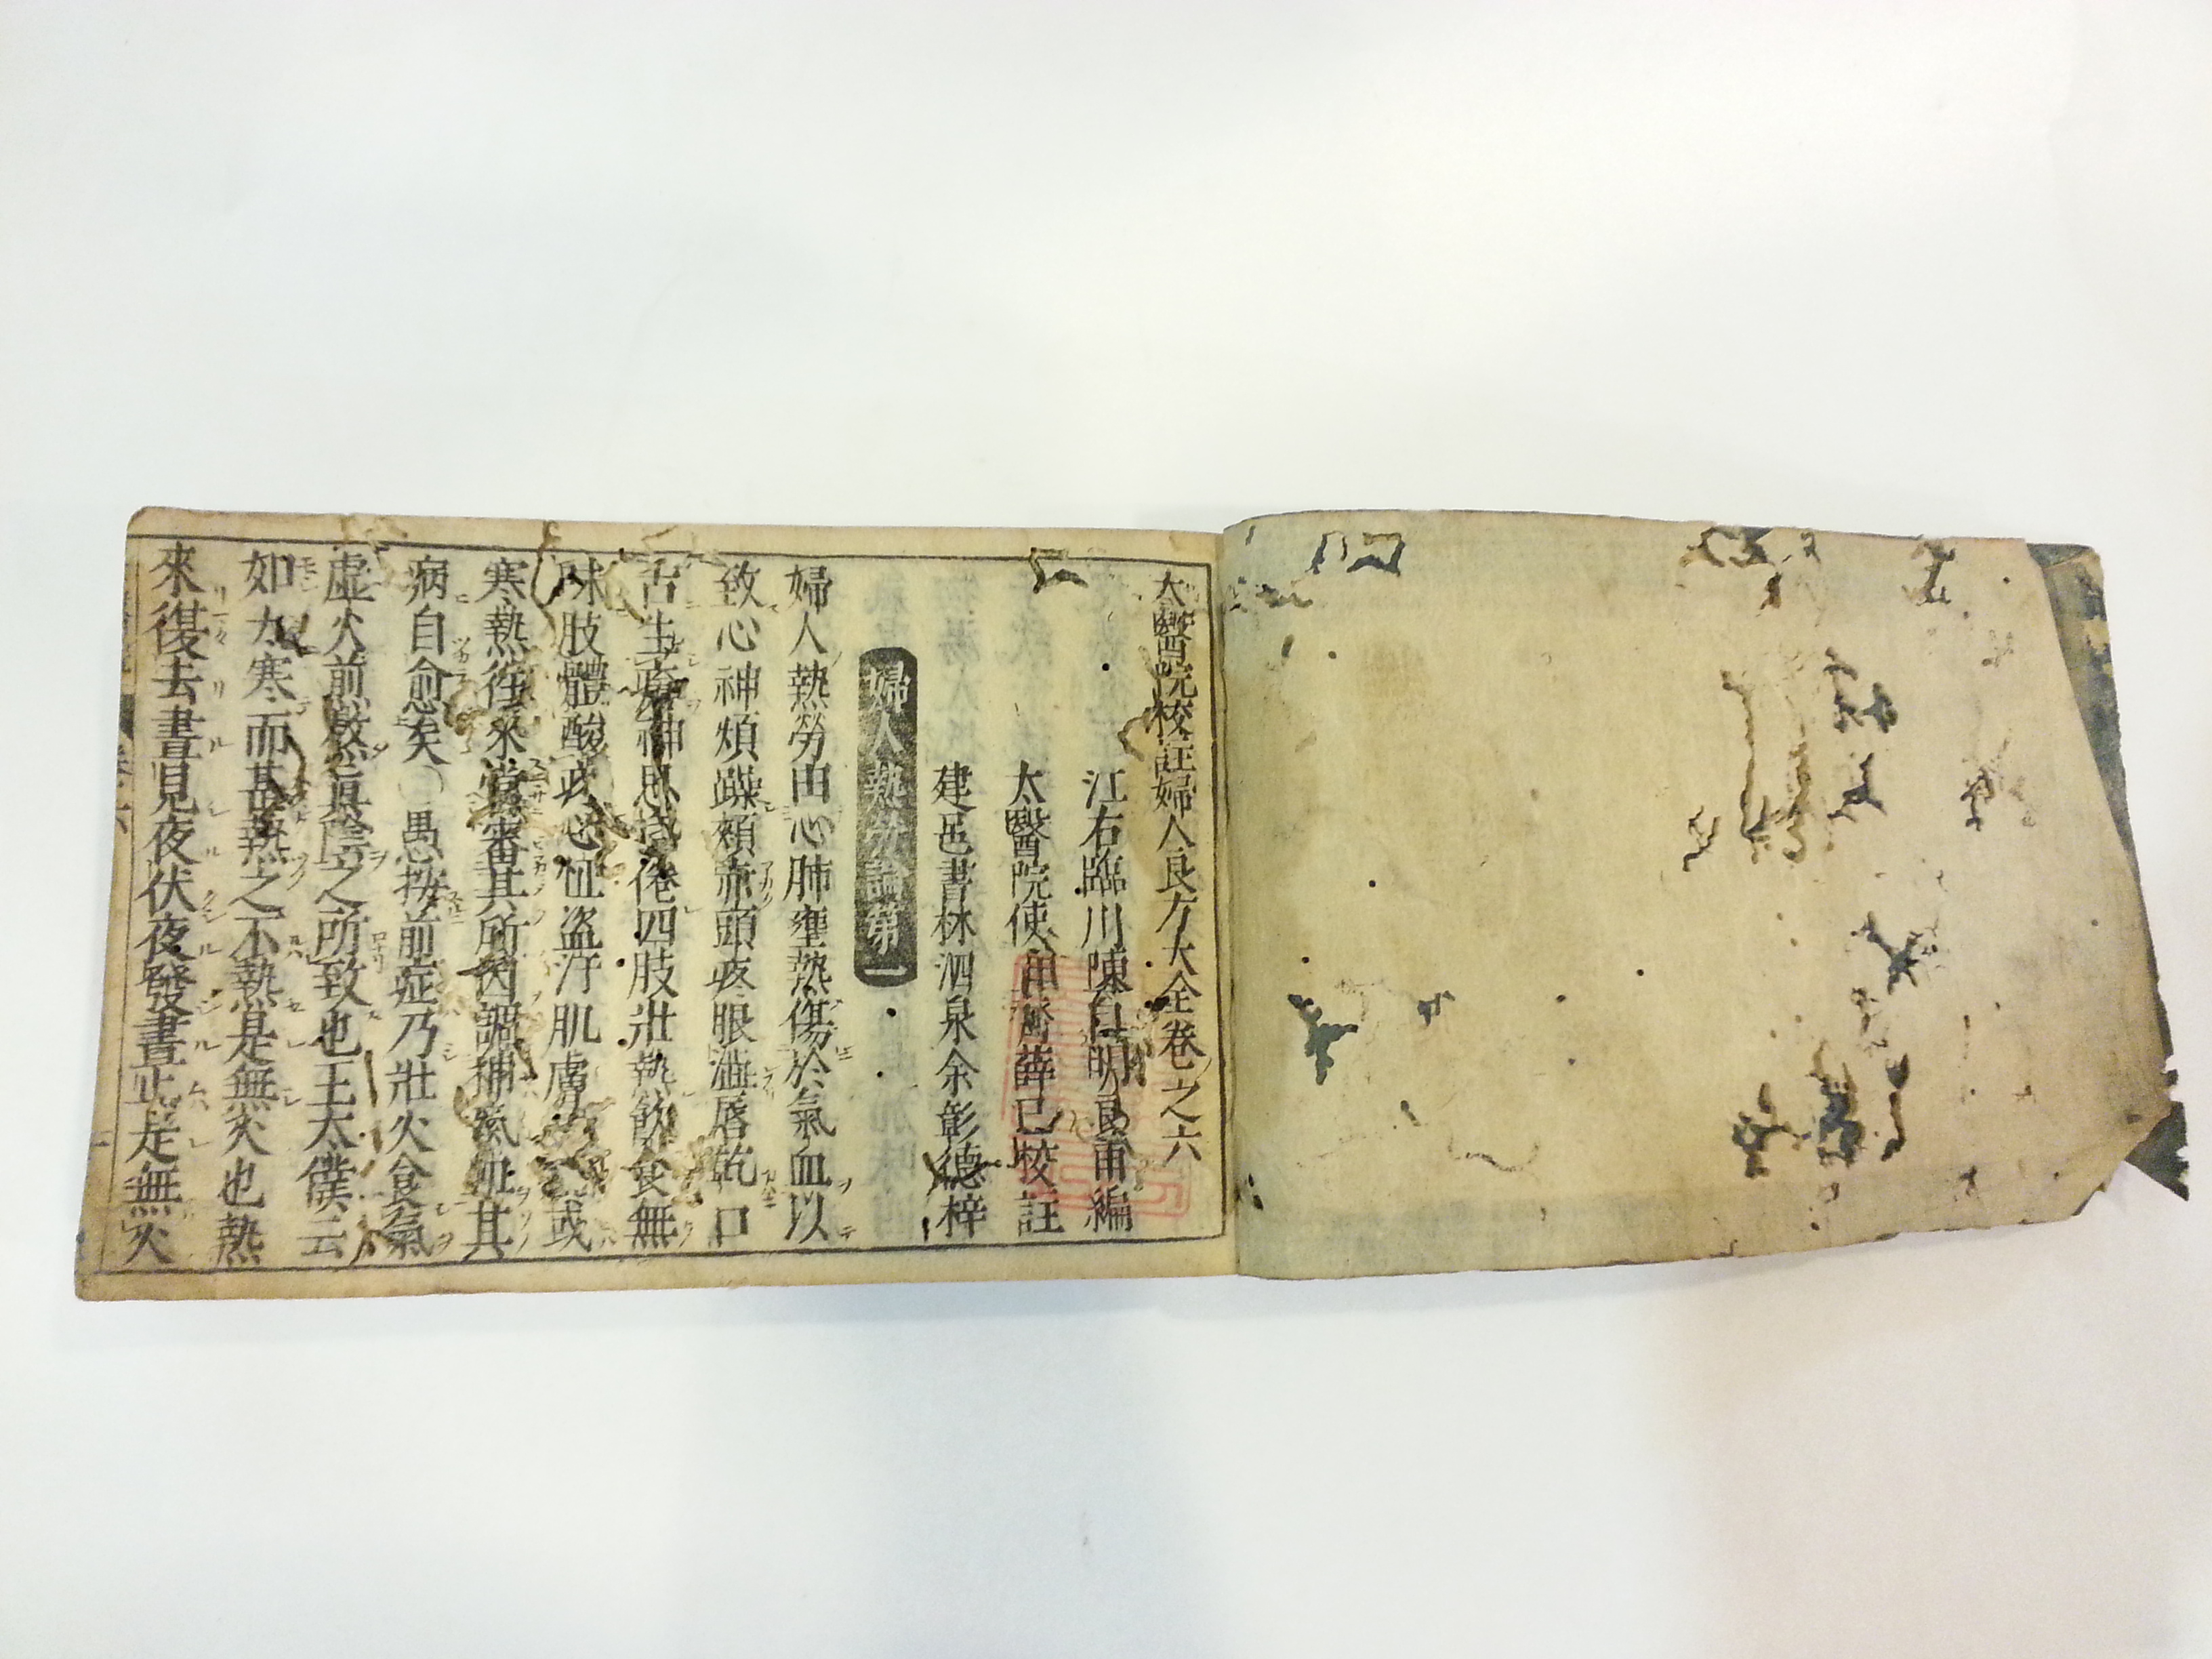 太醫院校註婦人良方大全卷之六
江右臨川陳自明良甫編
太醫院使薛已校註
建邑書林泗泉余彰德梓
婦人熱勞論第一
婦人熱勞由心肺壅熱傷於氣血以
致心神煩躁頰赤頭疼眼澁唇乾口
舌生瘡神思昏倦四肢壯熱飲食無
味肢體酸疼心怔盜汗肌膚或
寒熱往來當審其所因調補氣血其
病自愈矣〇愚按前症乃壯火食氣
虛火煎熬真陰之所致也王太僕云
如大寒而甚熱之不熱是無火也熱
來復去晝見夜伏夜發晝止是無火